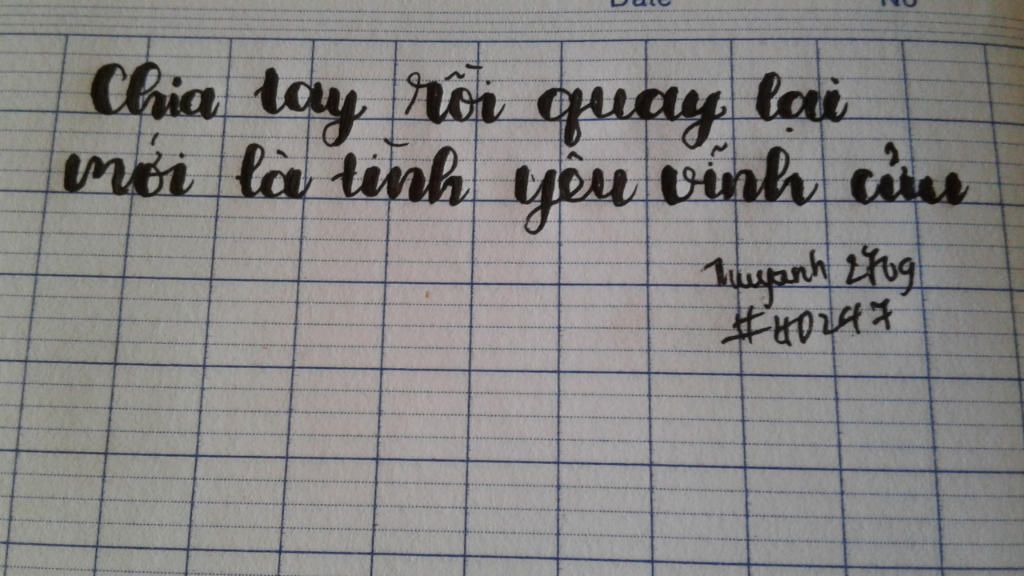 Date No
Chia tay rồi quay lại
mới là tình yêu vĩnh cửu
2709
#40247